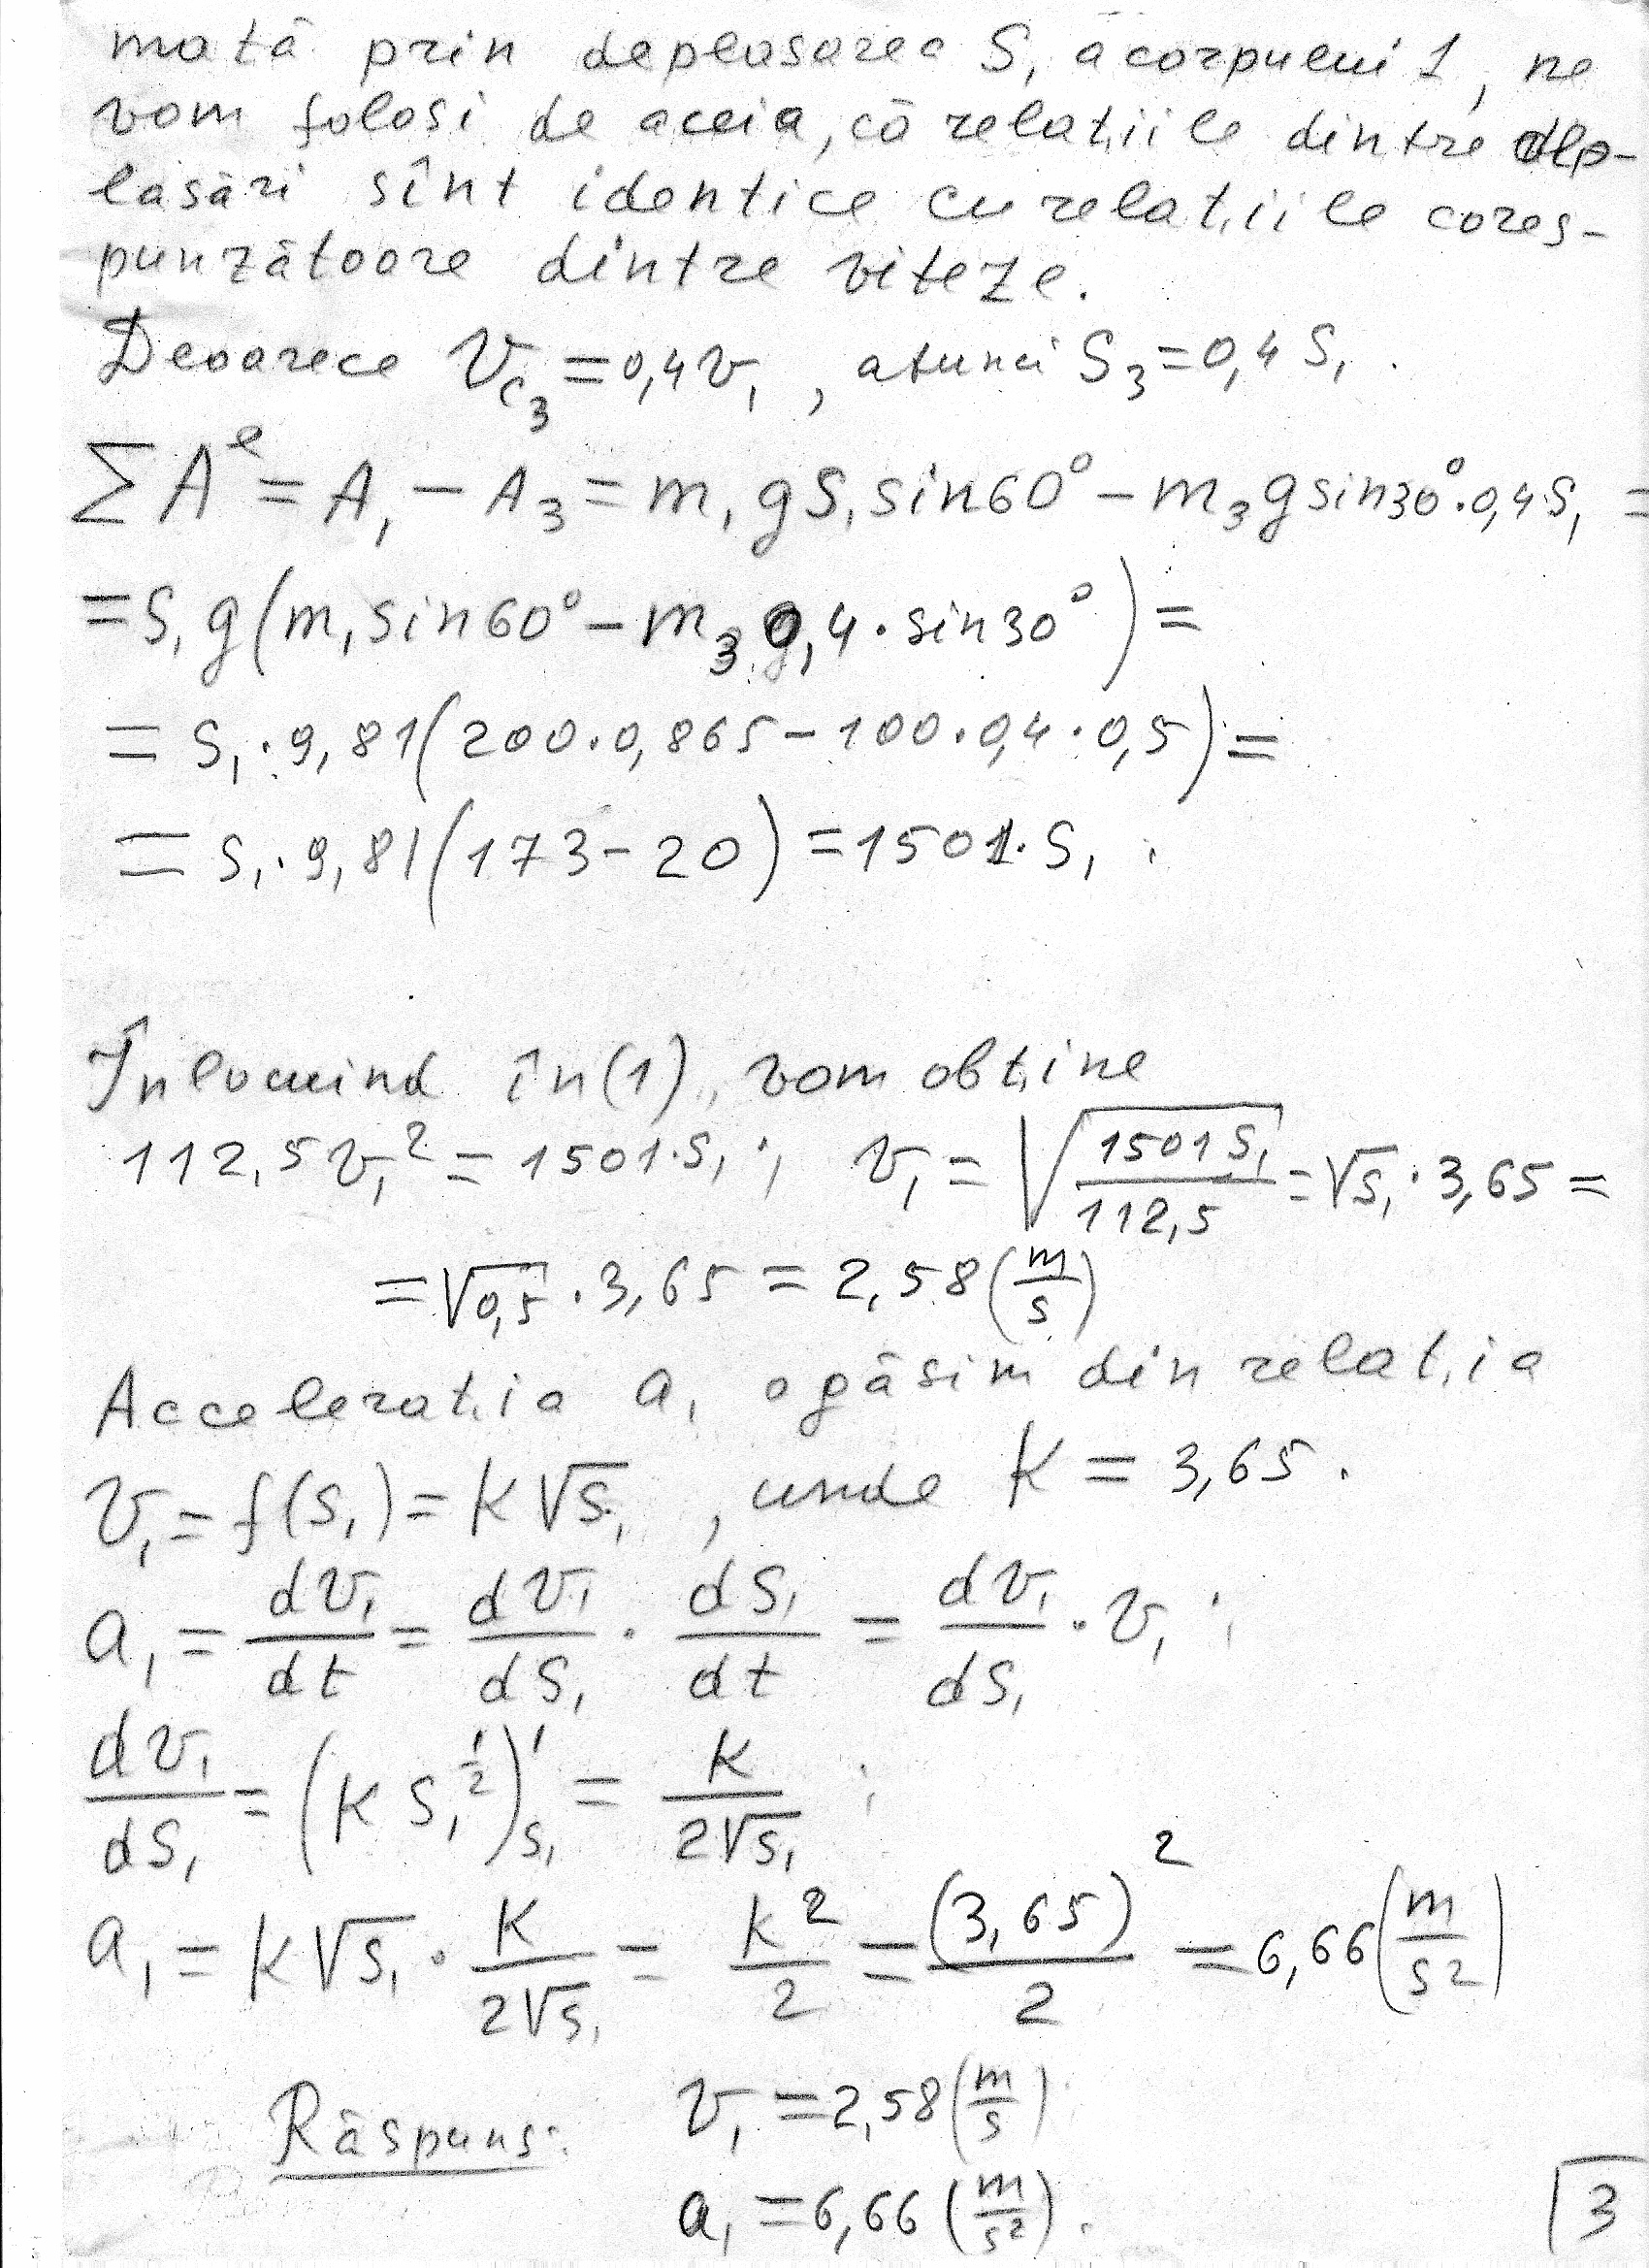 mată prin deplasarea S₁ a corpului 1, ne
vom folosi de aceia, că relațiile dintre dep-
lasări sînt identice cu relațiile cores-
punzătoare dintre viteze.
Deoarece V_C₃ = 0,4v₁, atunci S₃ = 0,4 S₁.
ΣAᵉ = A₁ − A₃ = m₁gS₁sin60° − m₃gsin30°·0,4S₁ =
= S₁g(m₁sin60° − m₃0,4·sin30°) =
= S₁·9,81(200·0,865 − 100·0,4·0,5) =
= S₁·9,81(173 − 20) = 1501·S₁;
Înlocuind în (1), vom obține
112,5v₁² = 1501·S₁; v₁ = √(1501S₁/112,5) = √S₁·3,65 =
= √0,5·3,65 = 2,58(m/s)
Accelerația a₁ o găsim din relația
v₁ = f(S₁) = K√S₁, unde K = 3,65.
a₁ = dv₁/dt = dv₁/dS₁ · dS₁/dt = dv₁/dS₁ · v₁;
dv₁/dS₁ = (K S₁^(1/2))'_S₁ = K/(2√S₁);
a₁ = K√S₁ · K/(2√S₁) = K²/2 = (3,65)²/2 = 6,66(m/s²)
Răspuns: v₁ = 2,58(m/s)
a₁ = 6,66(m/s²).
3